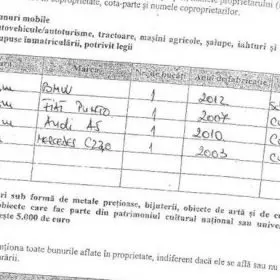 coproprietate, cota-parte și numele coproprietarilor.
unuri mobile
utovehicule/autoturisme, tractoare, mașini agricole, șalupe, iahturi și
upuse înmatriculării, potrivit legii
Marca Nr. de bucăți Anul de fabricație
BMW 1 2012
FIAT PUNTO 1 2007
Audi A5 1 2010
MERCEDES C220 1 2003
ri sub formă de metale prețioase, bijuterii, obiecte de artă și de c
obiecte care fac parte din patrimoniul cultural național sau univer
ește 5.000 de euro
nționa toate bunurile aflate în proprietate, indiferent dacă ele se află sau nu
rării.